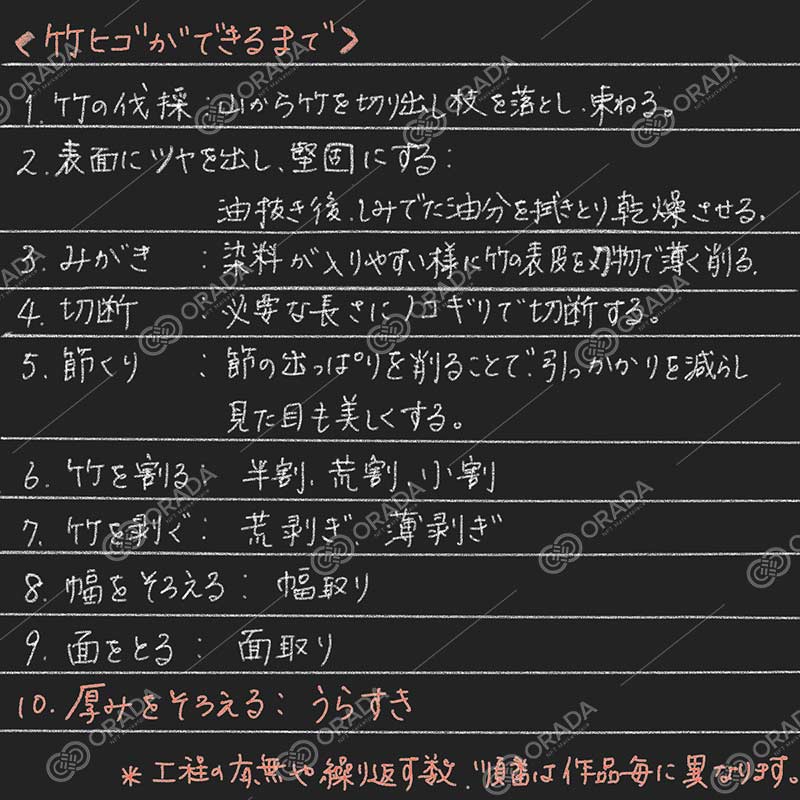 <竹ヒゴができるまで>
1. 竹の伐採：山から竹を切り出し枝を落とし、束ねる。
2. 表面にツヤを出し、堅固にする：
油抜き後、しみでた油分を拭きとり乾燥させる。
3. みがき：染料が入りやすい様に竹の表皮を刃物で薄く削る。
4. 切断：必要な長さにノコギリで切断する。
5. 節くり：節の出っぱりを削ることで、引っかかりを減らし
見た目も美しくする。
6. 竹を割る：半割、荒割、小割
7. 竹を剥ぐ：荒剥ぎ、薄剥ぎ
8. 幅をそろえる：幅取り
9. 面をとる：面取り
10. 厚みをそろえる：うらすき
＊工程の有無や繰り返す数、順番は作品毎に異なります。
ORADA
NFT Marketplace